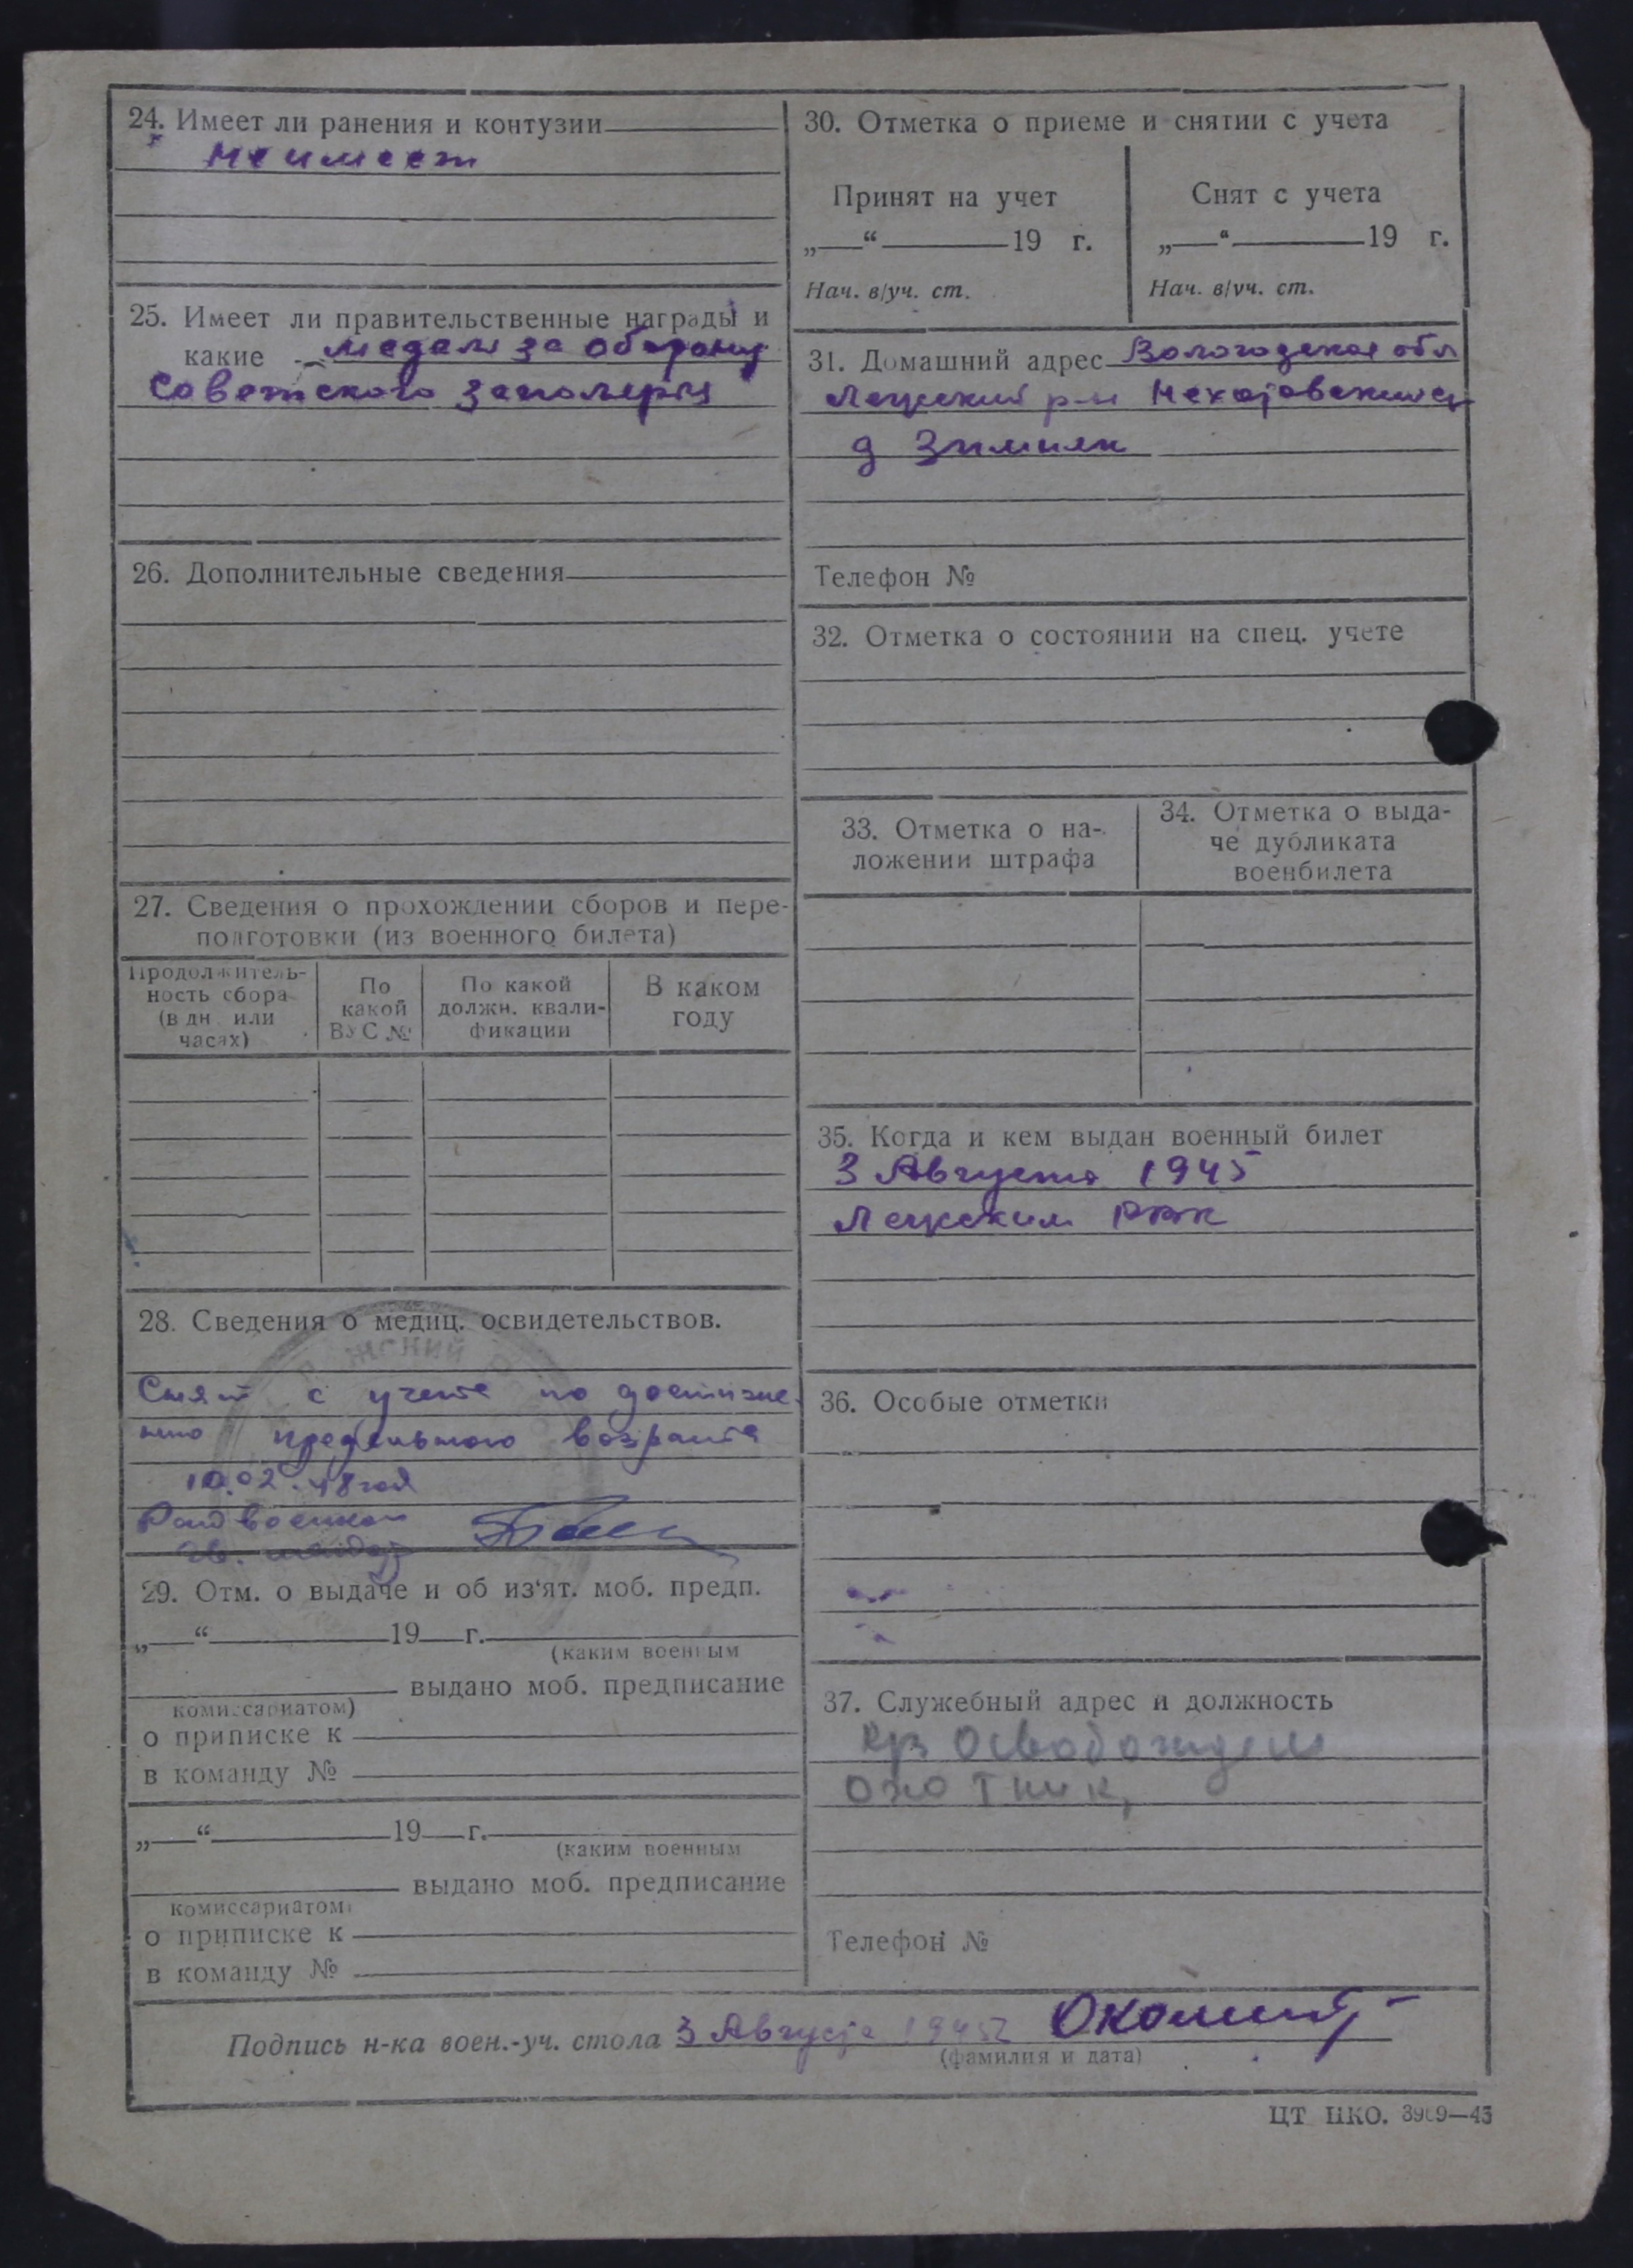 24. Имеет ли ранения и контузии
не имеет
25. Имеет ли правительственные награды и
какие медаль за оборону
Советского заполярья
26. Дополнительные сведения
27. Сведения о прохождении сборов и пере-
подготовки (из военного билета)
Продолжитель-
ность сбора
(в дн. или
часах)
По
какой
ВУС №
По какой
должн. квали-
фикации
В каком
году
28. Сведения о медиц. освидетельствов.
Снят с учета по достиже
нию предельного возраста
10.02.48 год
Райвоенком
гв. майор
29. Отм. о выдаче и об из'ят. моб. предп.
„ “ 19 г.
(каким военным
выдано моб. предписание
комиссариатом)
о приписке к
в команду №
„ “ 19 г.
(каким военным
выдано моб. предписание
комиссариатом)
о приписке к
в команду №
30. Отметка о приеме и снятии с учета
Принят на учет
„ “ 19 г.
Нач. в/уч. ст.
Снят с учета
„ “ 19 г.
Нач. в/уч. ст.
31. Домашний адрес Вологодская обл
р-н
д Зимняк
Телефон №
32. Отметка о состоянии на спец. учете
33. Отметка о на-
ложении штрафа
34. Отметка о выда-
че дубликата
военбилета
35. Когда и кем выдан военный билет
3 Августа 1945
РВК
36. Особые отметки
37. Служебный адрес и должность
охотник,
Телефон №
Подпись н-ка воен.-уч. стола 3 Августа 1945г
(фамилия и дата)
ЦТ НКО. 3909—43